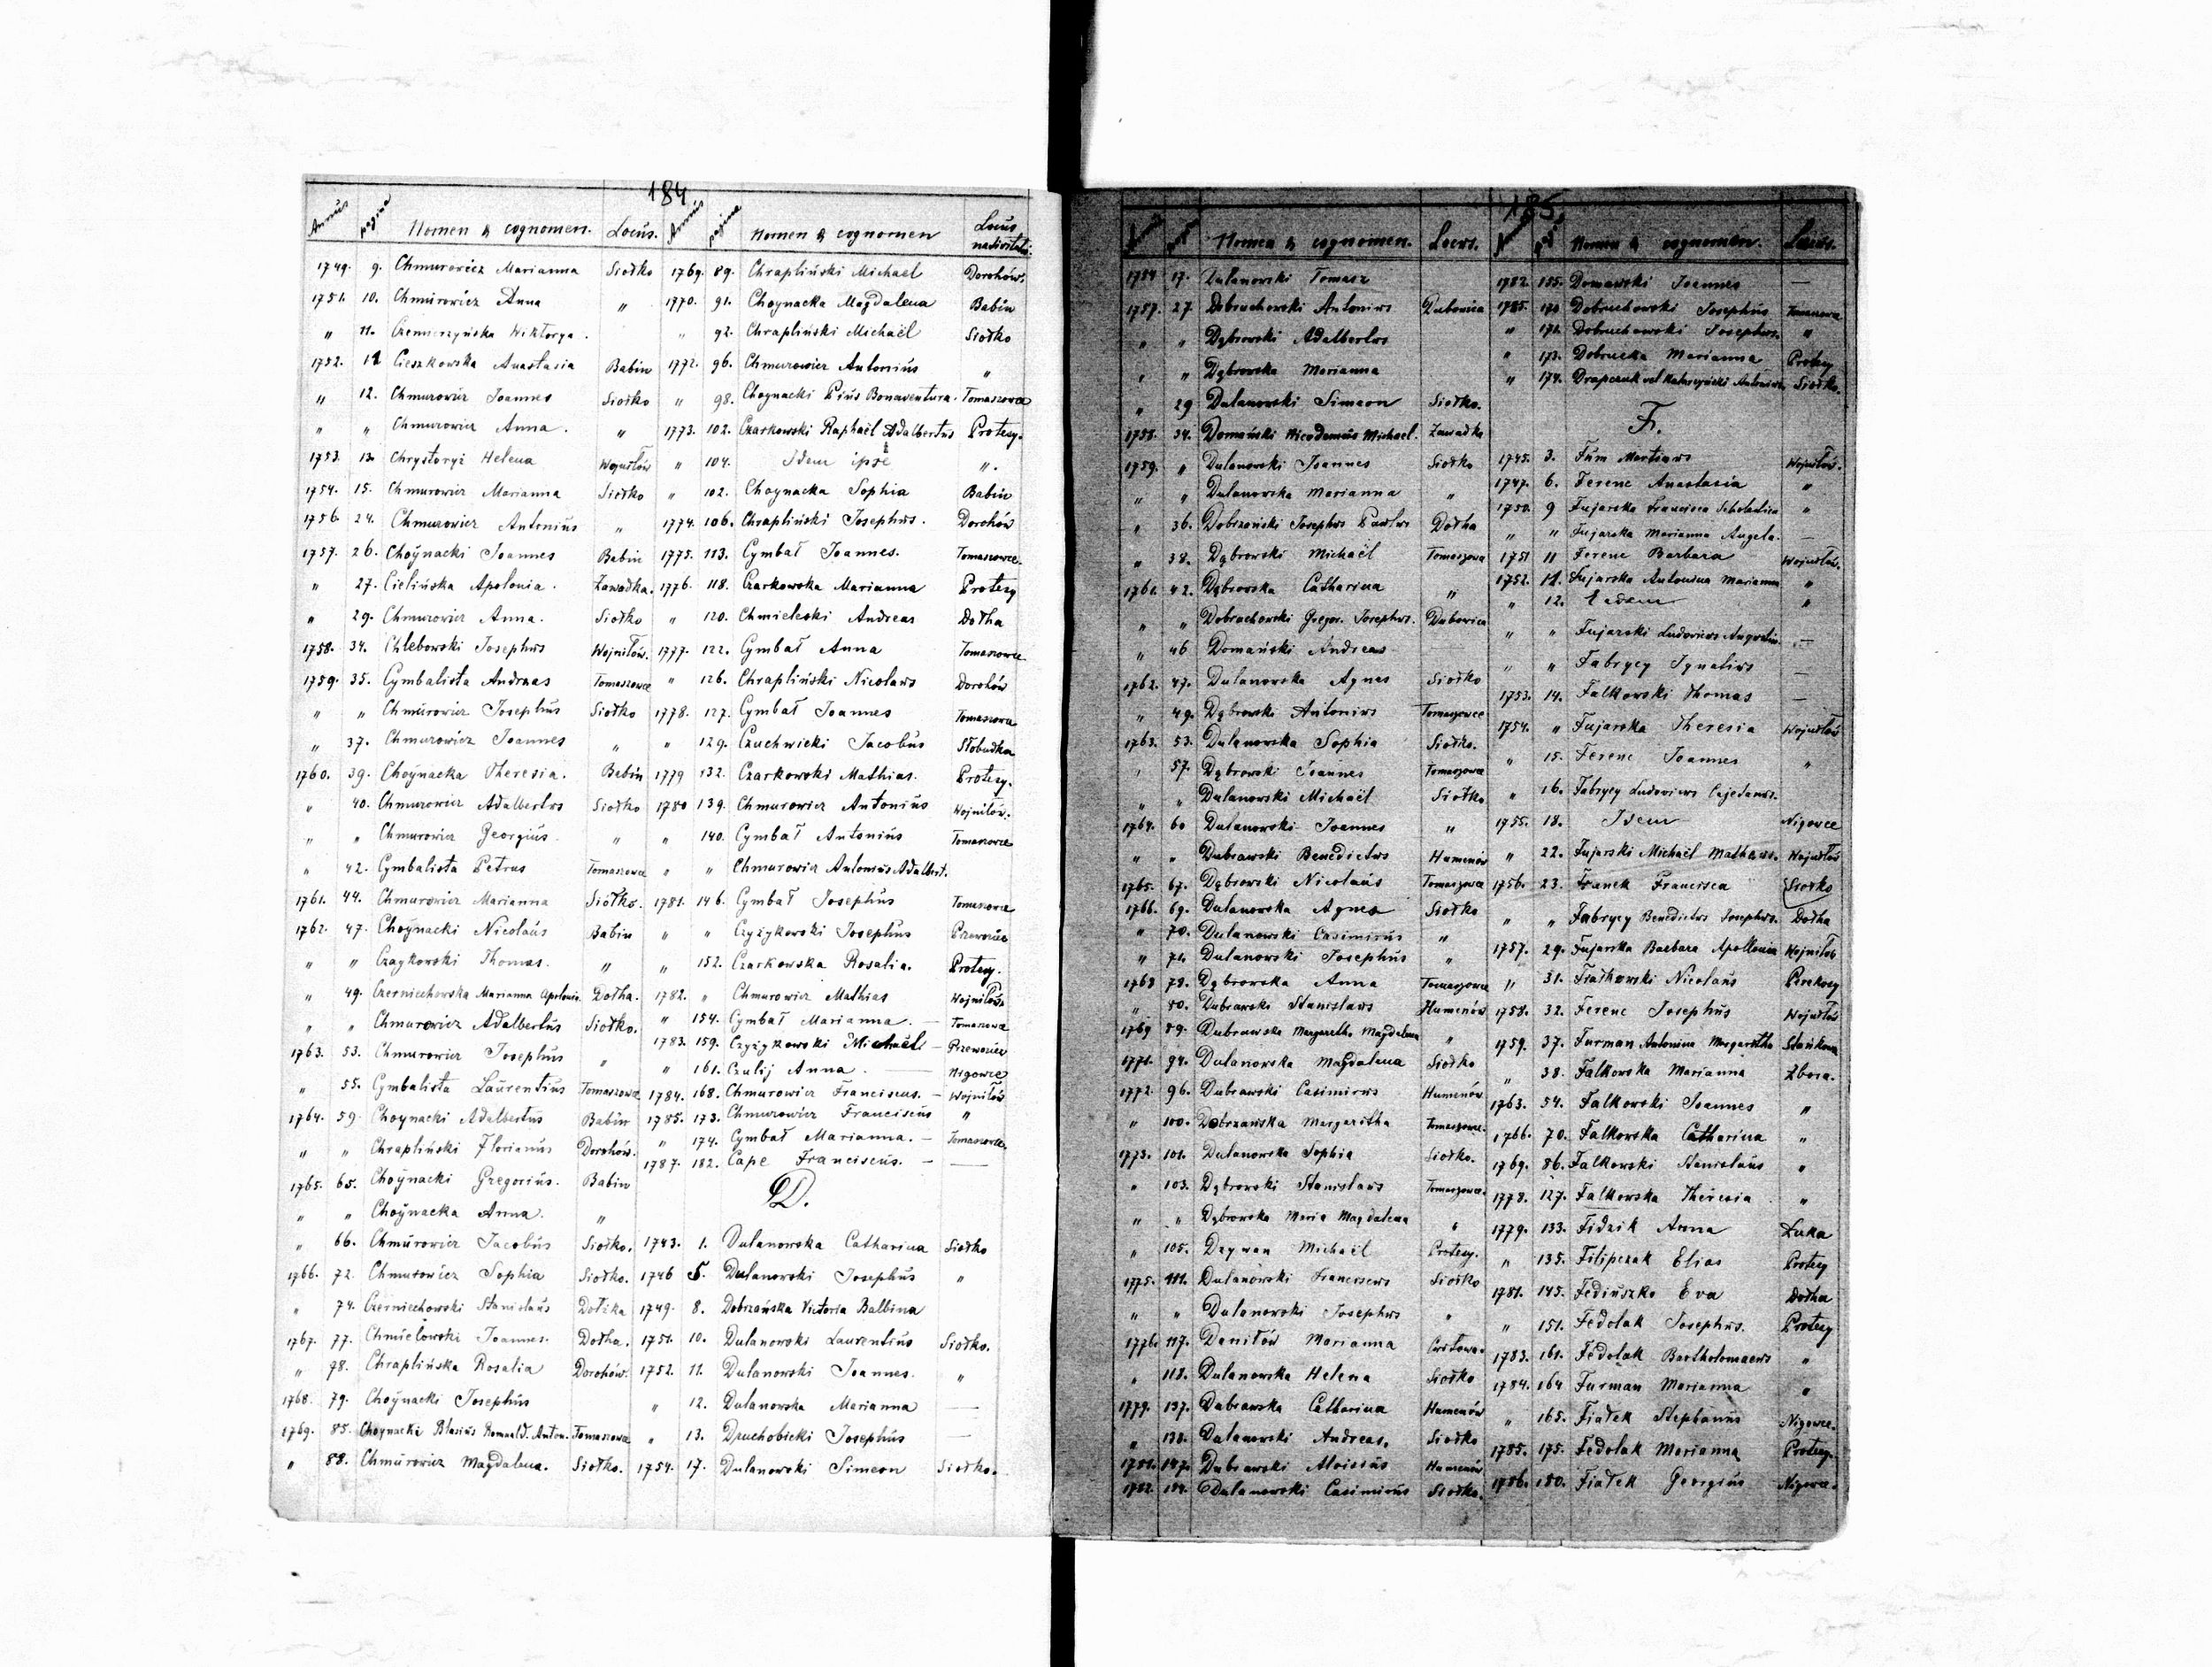 184
Annus pagina Nomen & cognomen. Locus.
1749. 9. Chmurowicz Marianna Siołko
1751. 10. Chmurowicz Anna "
" 11. Wiktorya.
1752. 11 Cieszkowska Anastasia Babin
" 12. Chmurowicz Joannes Siołko
" " Chmurowicz Anna. "
1753. 13. Chrystoryi Helena Wojniłów
1754. 15. Chmurowicz Marianna Siołko
1756. 24. Chmurowicz Antonius "
1757. 26. Choynacki Joannes Babin
" 27. Cielińska Apolonia. Zawadka.
" 29. Chmurowicz Anna. Siołko
1758. 34. Chlebowski Josephus Wojniłów.
1759. 35. Cymbalista Andreas Tomaszowce
" " Chmurowicz Josephus Siołko
" 37. Chmurowicz Joannes "
1760. 39. Choynacka Theresia. Babin
" 40. Chmurowicz Adalbertus Siołko
" " Chmurowicz Georgius. "
" 42. Cymbalista Petrus Tomaszowce
1761. 44. Chmurowicz Marianna Siołko.
1762. 47. Choynacki Nicolaus Babin
" " Czaykowski Thomas. "
" 49. Czerniechowska Marianna Apolonia. Dołha.
" " Chmurowicz Adalbertus Siołko.
1763. 53. Chmurowicz Josephus "
" 55. Cymbalista Laurentius Tomaszowce
1764. 59. Choynacki Adalbertus Babin
" " Chrapliński Florianus Dorohów.
1765. 65. Choynacki Gregorius. Babin
" " Choynacka Anna. "
" 66. Chmurowicz Jacobus Siołko.
1766. 72. Chmurowicz Sophia Siołko.
" 74. Czerniechowski Stanislaus Dołzka
1767. 77. Chmielowski Joannes. Dołha.
" 78. Chraplińska Rosalia Dorohów.
1768. 79. Choynacki Josephus
1769. 85. Choynacki Blasius Romuald. Anton. Tomaszowce
" 88. Chmurowicz Magdalena. Siołko.
Annus pagina Nomen & cognomen Locus nativitatis
1769. 89. Chrapliński Michael Dorohów.
1770. 91. Choynacka Magdalena Babin
" 92. Chrapliński Michaël Siołko
1772. 96. Chmurowicz Antonius "
" 98. Choynacki Pius Bonaventura. Tomaszowce
1773. 102. Czarkowski Raphaël Adalbertus Protesy.
" 104. Idem ipse ".
" 102. Choynacka Sophia Babin
1774. 106. Chrapliński Josephus. Dorohów
1775. 113. Cymbał Joannes. Tomaszowce.
1776. 118. Czarkowska Marianna Protesy
" 120. Chmieleski Andreas Dołha
1777. 122. Cymbał Anna Tomaszowce
" 126. Chrapliński Nicolaus Dorohów
1778. 127. Cymbał Joannes Tomaszowce
" 129. Czuchwicki Jacobus Słobudka
1779 132. Czarkowski Mathias. Protesy.
1780 139. Chmurowicz Antonius Wojniłów.
" 140. Cymbał Antonius Tomaszowce
" " Chmurowicz Antonius Adalbert.
1781. 146. Cymbał Josephus Tomaszowce
" " Czyżykowski Josephus Przewoziec
" 152. Czarkowska Rosalia. Protesy.
1782. " Chmurowicz Mathias Wojniłów
" 154. Cymbał Marianna. — Tomaszowce
1783. 159. Czyżykowski Michaël — Przewoziec
" 161. Czulij Anna. — Nigowce
1784. 168. Chmurowicz Franciscus. — Wojniłów
1785. 173. Chmurowicz Franciscus "
" 174. Cymbał Marianna. — Tomaszowce.
1787. 182. Cape Franciscus. — —
D.
1743. 1. Dulanowska Catharina Siołko
1746 5. Dulanowski Josephus "
1749. 8. Dobrzańska Victoria Balbina
1751. 10. Dulanowski Laurentius Siołko.
1752. 11. Dulanowski Joannes. "
" 12. Dulanowska Marianna —
" 13. Druchobicki Josephus —
1754. 17. Dulanowski Simeon Siołko.
185.
Nomen & cognomen. Locus.
1754 17. Dulanowski Tomasz
1757. 27 Dobruchowski Antonius Dubowica
" " Dąbrowski Adalbertus
" " Dąbrowska Marianna
" 29 Dulanowski Simeon Siołko.
1758. 34. Domański Nicodemus Michael. Zawadka
1759. " Dulanowski Joannes Siołko
" " Dulanowska Marianna "
" 36. Dobrzański Josephus Paulus Dołha
" 38. Dąbrowski Michaël Tomaszowce
1761. 42. Dąbrowska Catharina "
" " Dobruchowski Gregor. Josephus. Dubowica
" 46 Domański Andreas
1762. 47. Dulanowska Agnes Siołko
" 49. Dąbrowski Antonius Tomaszowce
1763. 53. Dulanowska Sophia Siołko.
" 57. Dąbrowski Joannes Tomaszowce
" " Dulanowski Michaël Siołko
1764. 60 Dulanowski Joannes "
" " Dubrawski Benedictus Humenów
1765. 67. Dąbrowski Nicolaus Tomaszowce
1766. 69. Dulanowska Agnes Siołko
" 70. Dulanowski Casimirus "
" 71. Dulanowski Josephus "
1768 78. Dąbrowska Anna Tomaszowce
" 80. Dubrawski Stanislaus Humenów
1769 89. Dubrawska Margaretha Magdalena "
1771. 94. Dulanowska Magdalena Siołko
1772. 96. Dubrawski Casimirus Humenów
" 100. Dobrzańska Margaritha Tomaszowce.
1773. 101. Dulanowska Sophia Siołko.
" 103. Dąbrowski Stanislaus Tomaszowce.
" " Dąbrowska Maria Magdalena "
" 105. Dzywan Michaël Protesy.
1775. 111. Dulanowski Franciscus Siołko
" " Dulanowski Josephus "
1776. 117. Daniłów Marianna
" 118. Dulanowska Helena Siołko
1779. 137. Dubrawska Catharina Humenów
" 138. Dulanowski Andreas. Siołko
1781. 147. Dubrawski Aloisius Humenów
1782. 154. Dulanowski Casimirus Siołko.
Nomen & cognomen. Locus.
1782. 155. Domawski Joannes —
1785. 170 Dobruchowski Josephus Tomaszowce
" 171. Dobruchowski Josephus. "
" 173. Dobrucka Marianna Protesy
" 174. Drapczuk vel Antonius Siołko.
F.
1745. 3. Fum Martinus Wojniłów.
1747. 6. Ferenc Anastasia "
1750. 9 Fujarska Francisca Scholastica "
" " Fujarska Marianna Angela. —
1751 11 Ferenc Barbara Wojniłów.
1752. 11. Fujarska Antonina Marianna "
" 12. Eadem "
" " Fujarski Ludovicus Augustin. —
" " Fabrycy Ignatius —
1753. 14. Falkowski Thomas —
1754. " Fujarska Theresia Wojniłów
" 15. Ferenc Joannes "
" 16. Fabrycy Ludovicus Cajetanus.
1755. 18. Idem Nigowce
" 22. Fujarski Michaël Mathaeus. Wojniłów
1756. 23. Franek Francisca Siołko
" " Fabrycy Benedictus Josephus. Dołha
1757. 29. Fujarska Barbara Apollonia Wojniłów
" 31. Fiałkowski Nicolaus Perekosy
1758. 32. Ferenc Josephus Wojniłów
1759. 37. Furman Antonina Margaritha Stańkowa
" 38. Falkowska Marianna Zbora.
1763. 54. Falkowski Joannes "
1766. 70. Falkowska Catharina "
1769. 86. Falkowski Stanislaus "
1778. 127. Falkowska Theresia "
1779. 133. Fidzik Anna Łuka
" 135. Filipczak Elias Protesy
1781. 145. Fediuszko Eva Dołha
" 151. Fedolak Josephus. Protesy
1783. 161. Fedolak Bartholomaeus "
1784. 164 Furman Marianna "
" 165. Fiałek Stephanus Nigowce.
1785. 175. Fedolak Marianna Protesy.
1786. 180. Fiałek Georgius Nigowce.